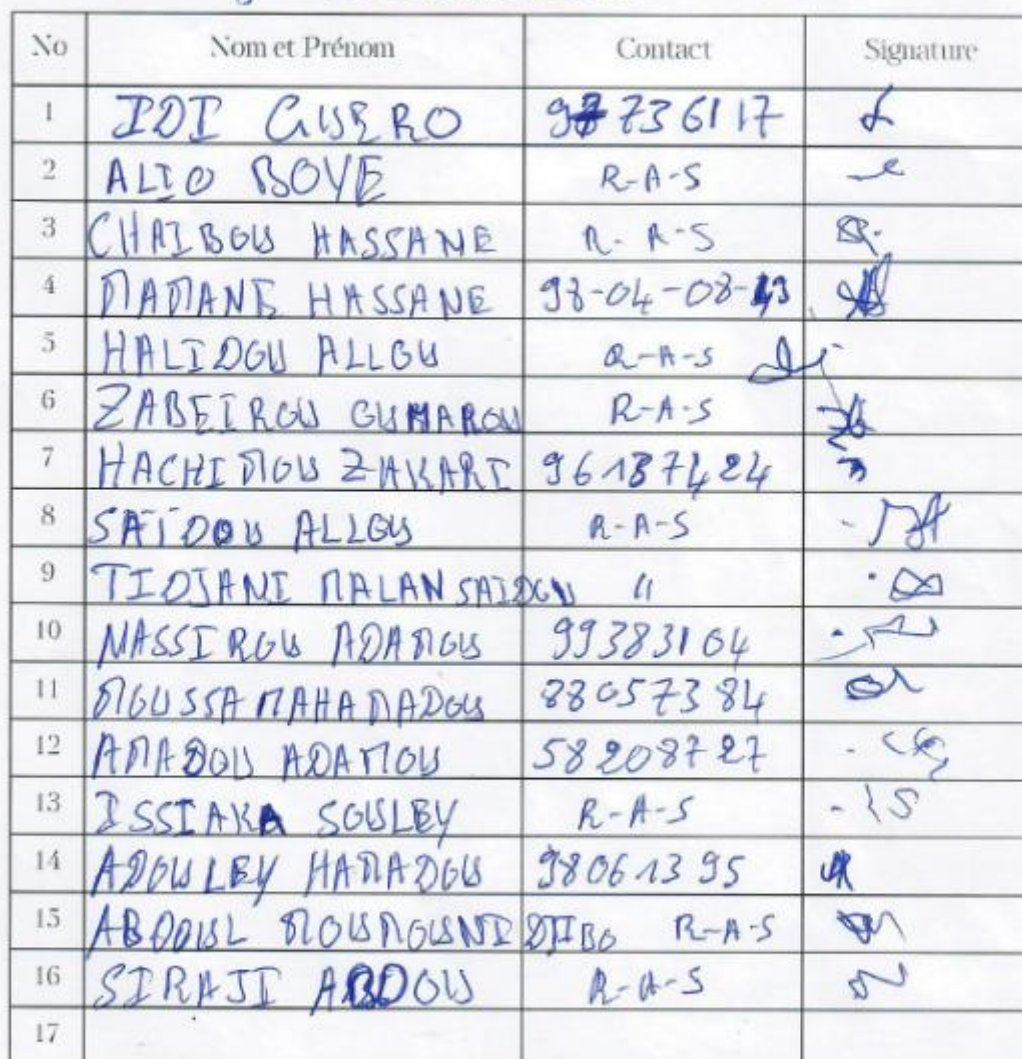 No Nom et Prénom Contact Signature
1 IDI GUERO 97736117
2 ALIO BOYE R-A-S
3 CHAIBOU HASSANE R-A-S
4 MAMANE HASSANE 98-04-08-43
5 HALIDOU ALLOU R-A-S
6 ZABEIROU OUMAROU R-A-S
7 HACHIMOU ZAKARI 96187424
8 SAIDOU ALLOU R-A-S
9 TIDJANI MALAN SAIDOU "
10 NASSIROU ADAMOU 99383104
11 MOUSSA MAHAMADOU 88057384
12 AMADOU ADAMOU 58208727
13 ISSIAKA SOULEY R-A-S
14 ADOULEY HAMADOU 98061395
15 ABDOUL MOUMOUNI DJIBO R-A-S
16 SIRAJI ABDOU R-A-S
17